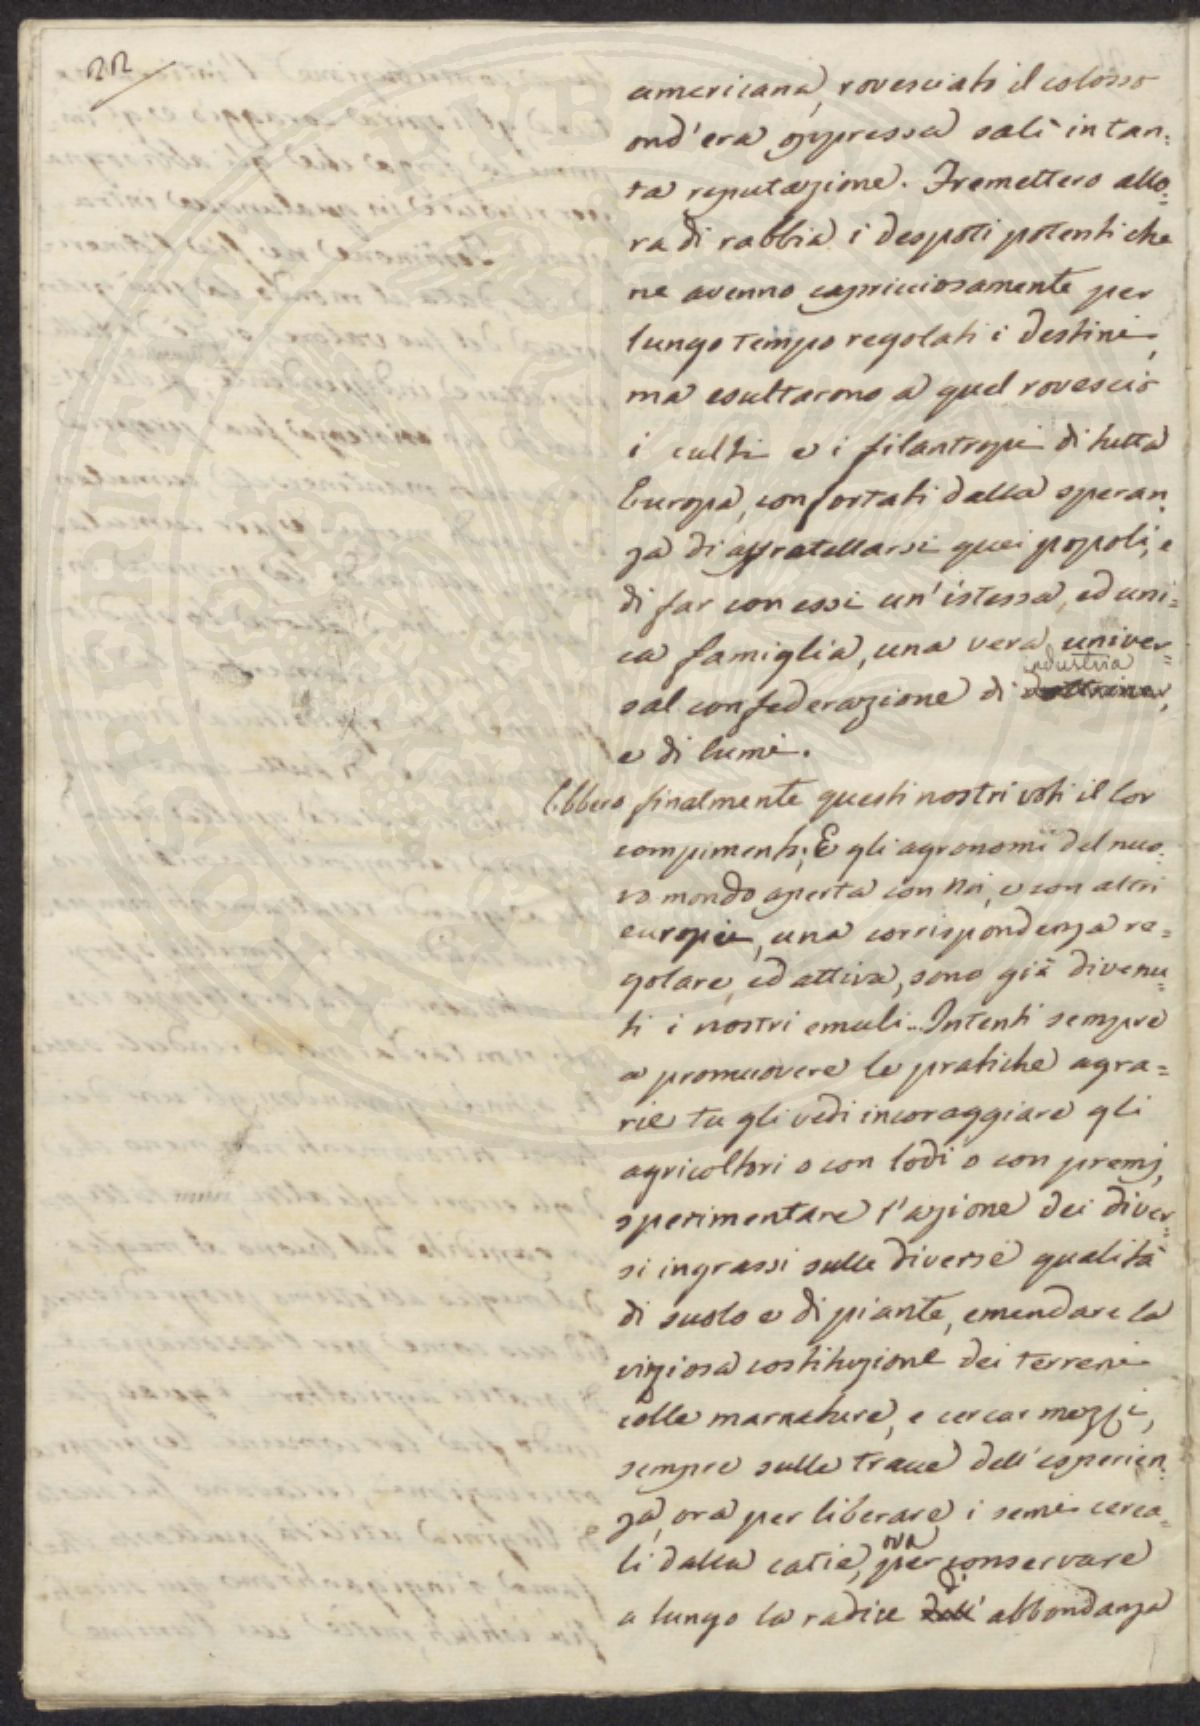 22
americana, rovesciato il colosso
ond'era oppressa salì in tan=
ta reputazione. Fremettero allo=
ra di rabbia i despoti potenti che
ne avenno capricciosamente per
lungo tempo regolati i destini,
ma esultarono a quel rovescio
i culti e i filantropi di tutta
Europa, confortati dalla speran=
za di affratellarsi quei popoli, e
di far con essi un'istessa, ed uni=
ca famiglia, una vera univer=
sal confederazione di industria
e di lumi.
Ebbero finalmente questi nostri voti il lor
compimento; E gli agronomi del nuo=
vo mondo aperta con noi, e con altri
europei, una corrispondenza re=
golare, ed attiva, sono già divenu=
ti i nostri emuli.. Intenti sempre
a promuovere le pratiche agra=
rie tu gli vedi incoraggiare gli
agricoltori o con lodi o con premj,
sperimentare l'azione dei diver=
si ingrassi sulle diverse qualità
di suolo e di piante, emendare la
viziosa costituzione dei terreni
colle marnature, e cercar mezzi,
sempre sulle tracce dell'esperien=
za, ora per liberare i semi cerea=
li dalla carie, ora per conservare
a lungo la radice d' abbondanza